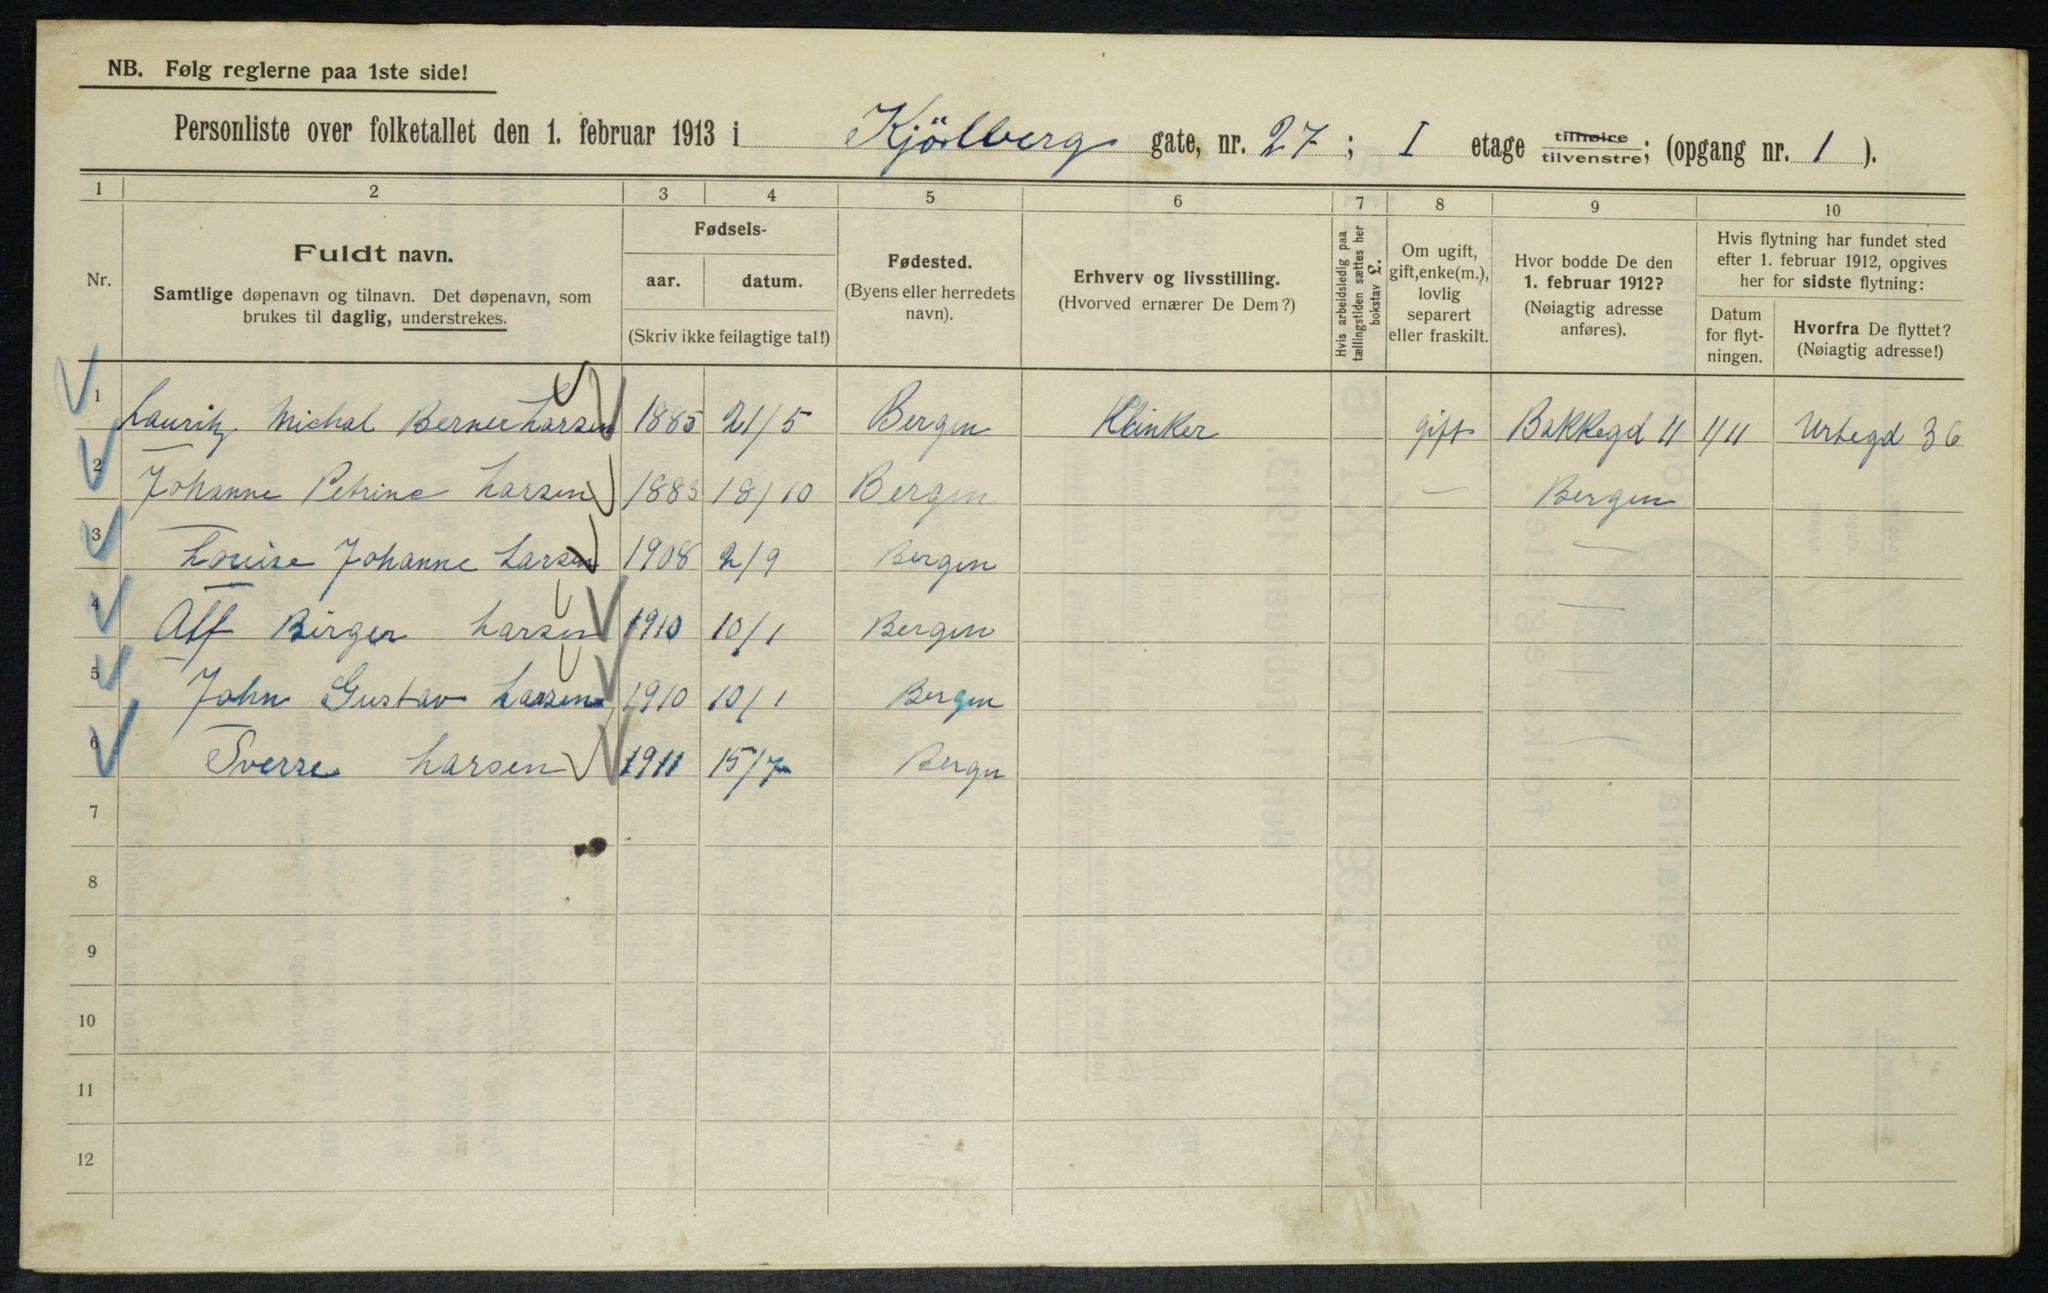 NB. Følg reglerne paa 1ste side!
Personliste over folketallet den 1. februar 1913 i Kjölberg gate, nr. 27 ; I etage tilhøire tilvenstre; (opgang nr. 1 ).
1 2 3 4 5 6 7 8 9 10
Nr.
Fuldt navn.
Samtlige døpenavn og tilnavn. Det døpenavn, som
brukes til daglig, understrekes.
Fødsels-
aar. datum.
(Skriv ikke feilagtige tal!)
Fødested.
(Byens eller herredets
navn).
Erhverv og livsstilling.
(Hvorved ernærer De Dem?)
Hvis arbeidsledig paa
tællingstiden sættes her
bokstav L.
Om ugift,
gift, enke(m.),
lovlig
separert
eller fraskilt.
Hvor bodde De den
1. februar 1912?
(Nøiagtig adresse
anføres).
Hvis flytning har fundet sted
efter 1. februar 1912, opgives
her for sidste flytning:
Datum
for flyt-
ningen.
Hvorfra De flyttet?
(Nøiagtig adresse!)
1 Lauritz Michal Berner Larsen 1885 21/5 Bergen Klinker gift Bakkegd 11 1/11 Urtegd 36
2 Johanne Petrine Larsen 1883 18/10 Bergen — Bergen
3 Louise Johanne Larsen 1908 2/9 Bergen —
4 Alf Birger Larsen 1910 10/1 Bergen —
5 John Gustav Larsen 1910 10/1 Bergen —
6 Sverre Larsen 1911 15/7 Bergn —
7
8
9
10
11
12